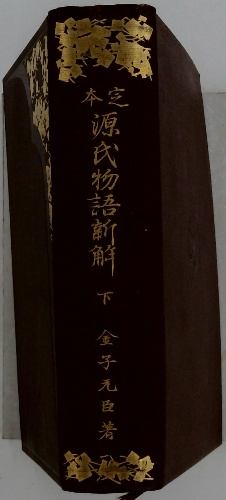 定本
源氏物語新解
下
金子元臣著